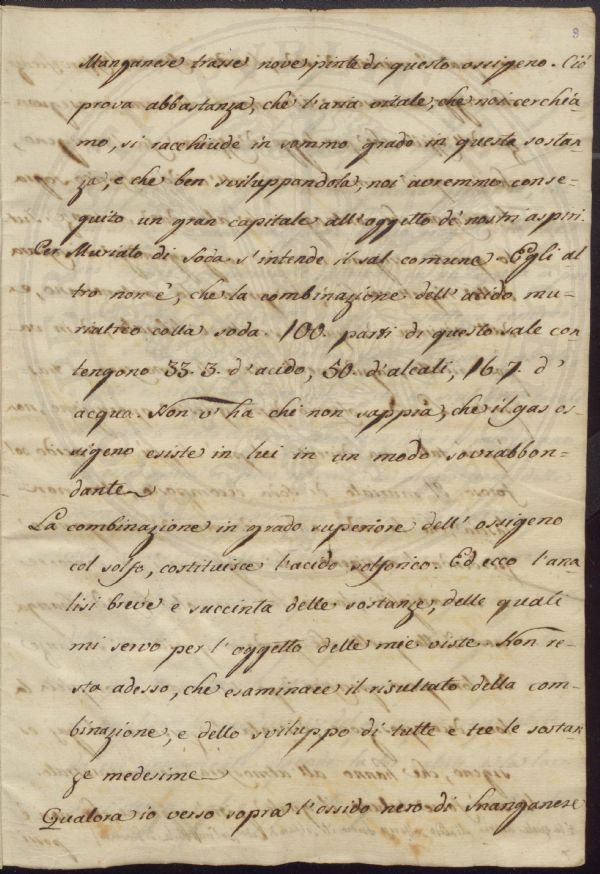 9
Manganese trasse nove pinte di questo ossigeno. Ciò
prova abbastanza, che l'aria vitale, che noi cerchia-
mo, si racchiude in sommo grado in questa sostan-
za, e che ben sviluppandola, noi avremmo conse-
guito un gran capitale all'oggetto de' nostri aspiri.
Per Muriato di Soda s'intende il sal comune. Egli al
tro non è, che la combinazione dell'acido mu-
riatico colla soda. 100. parti di questo sale con
tengono 33. 3. d'acido, 50. d'alcali, 16. 7. d'
acqua. Non v'ha chi non sappia, che il gas os-
sigeno esiste in lui in un modo sovrabbon-
dante
La combinazione in grado superiore dell'ossigeno
col solfo, costituisce l'acido solforico. Ed ecco l'ana
lisi breve e succinta delle sostanze, delle quali
mi servo per l'oggetto delle mie viste. Non re-
sta adesso, che esaminare il risultato della com-
binazione, e dello sviluppo di tutte e tre le sostan
ze medesime
Qualora io verso sopra l'ossido nero di Manganese